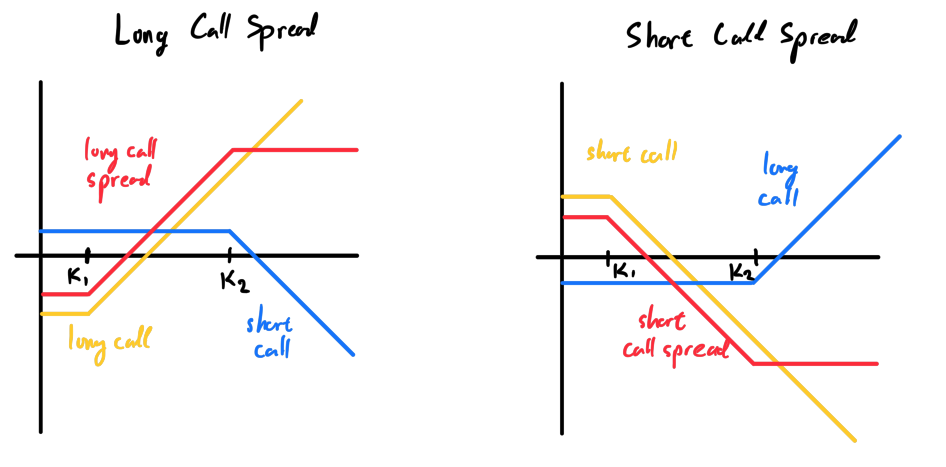 Long Call Spread
long call
spread
K1
K2
long call
short
call
Short Call Spread
short call
long
call
K1
K2
short
call spread